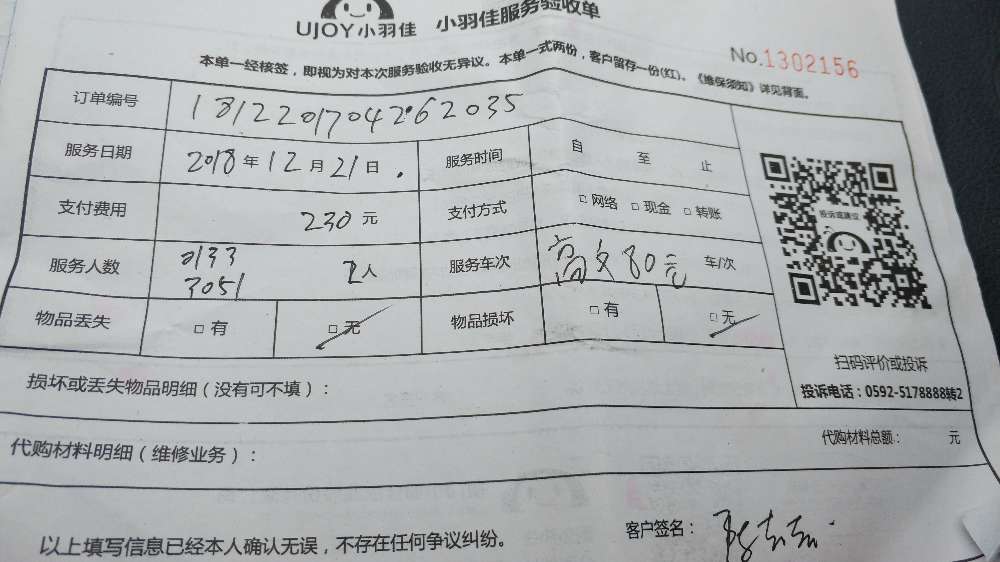 UJOY小羽佳 小羽佳服务验收单
No.1302156
本单一经核签，即视为对本次服务验收无异议。本单一式两份，客户留存一份(红)。《维保须知》详见背面。
订单编号 1812201704262035
服务日期 2018年12月21日 服务时间 自 至 止
支付费用 230元 支付方式 □网络 □现金 □转账
服务人数 0133 3051 2人 服务车次 80元 车/次
物品丢失 □有 □无 物品损坏 □有 □无
投诉或建议
扫码评价或投诉
投诉电话：0592-5178888转2
损坏或丢失物品明细（没有可不填）：
代购材料明细（维修业务）： 代购材料总额： 元
以上填写信息已经本人确认无误，不存在任何争议纠纷。 客户签名：